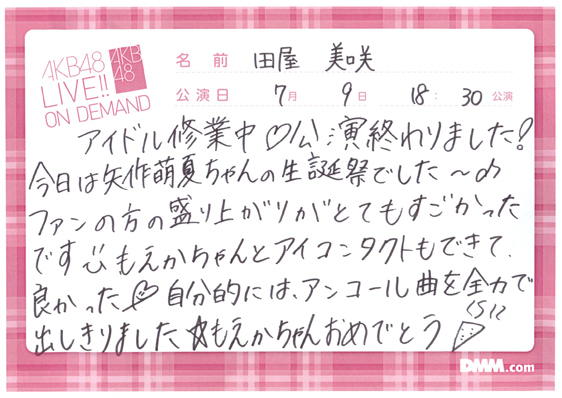 AKB48
LIVE!!
ON DEMAND
AKB
48
名前 田屋 美咲
公演日 7月 9日 18:30公演
アイドル修業中♡公演終わりました!
今日は矢作萌夏ちゃんの生誕祭でした〜♪
ファンの方の盛り上がりがとてもすごかった
です☺もえかちゃんとアイコンタクトもできて、
良かった♡自分的には、アンコール曲を全力で
出しきりました☆もえかちゃんおめでとう
DMM.com